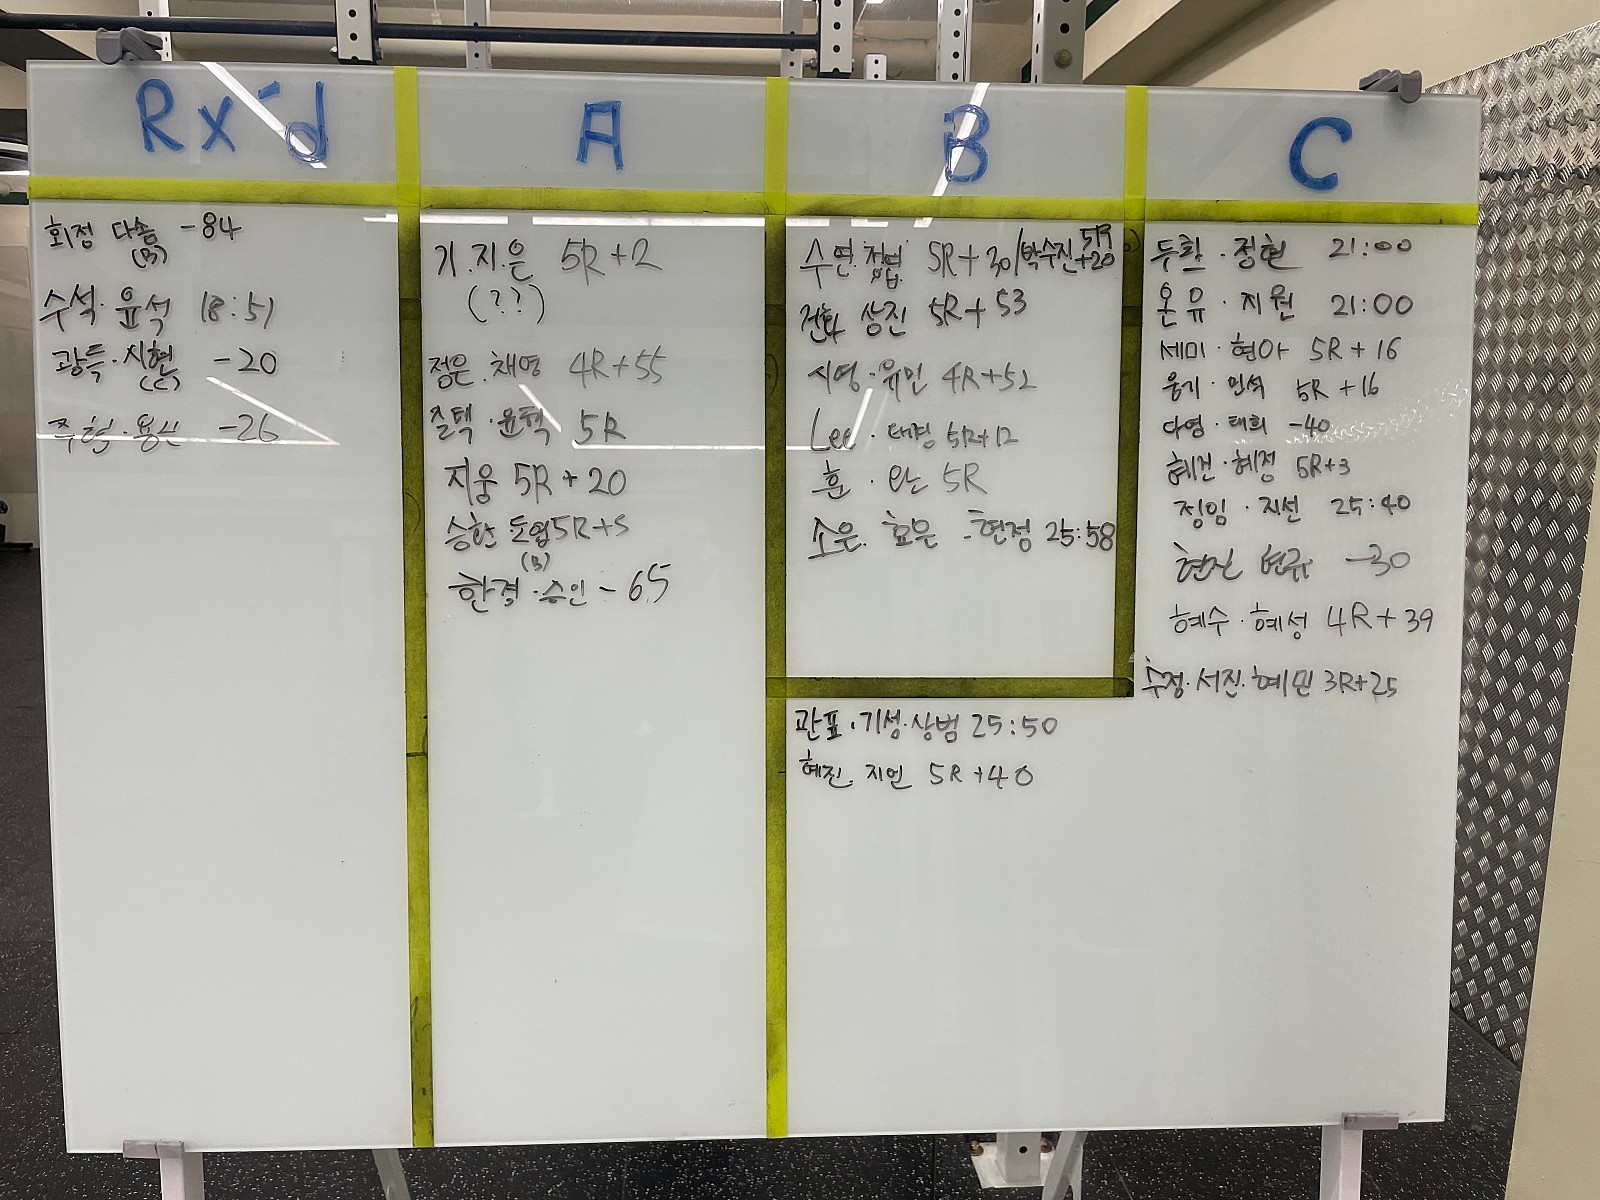 Rx'd
회정 다솜 -84
(B)
수석·윤석 18:51
광득·지현 -20
(C)
-26
A
기.지.은 5R+2
(??)
정은.채영 4R+55
윤택 5R
지웅 5R+20
승한 도엽 5R+5
(B)
한결·승인 -65
B
수연. 5R+30/박수진 5R+20
상진 5R+53
지영·유민 4R+52
Lee · 태경 5R+12
훈 · 완 5R
소은. 효은 - 현정 25:58
관표·기성·상범 25:50
혜진. 지언 5R+40
C
두환·정현 21:00
온유·지원 21:00
세미·현아 5R+16
웅기·민석 5R+16
다영·태희 -40
혜진·혜정 5R+3
정임·지선 25:40
-30
혜수·혜성 4R+39
수정·서진·혜민 3R+25